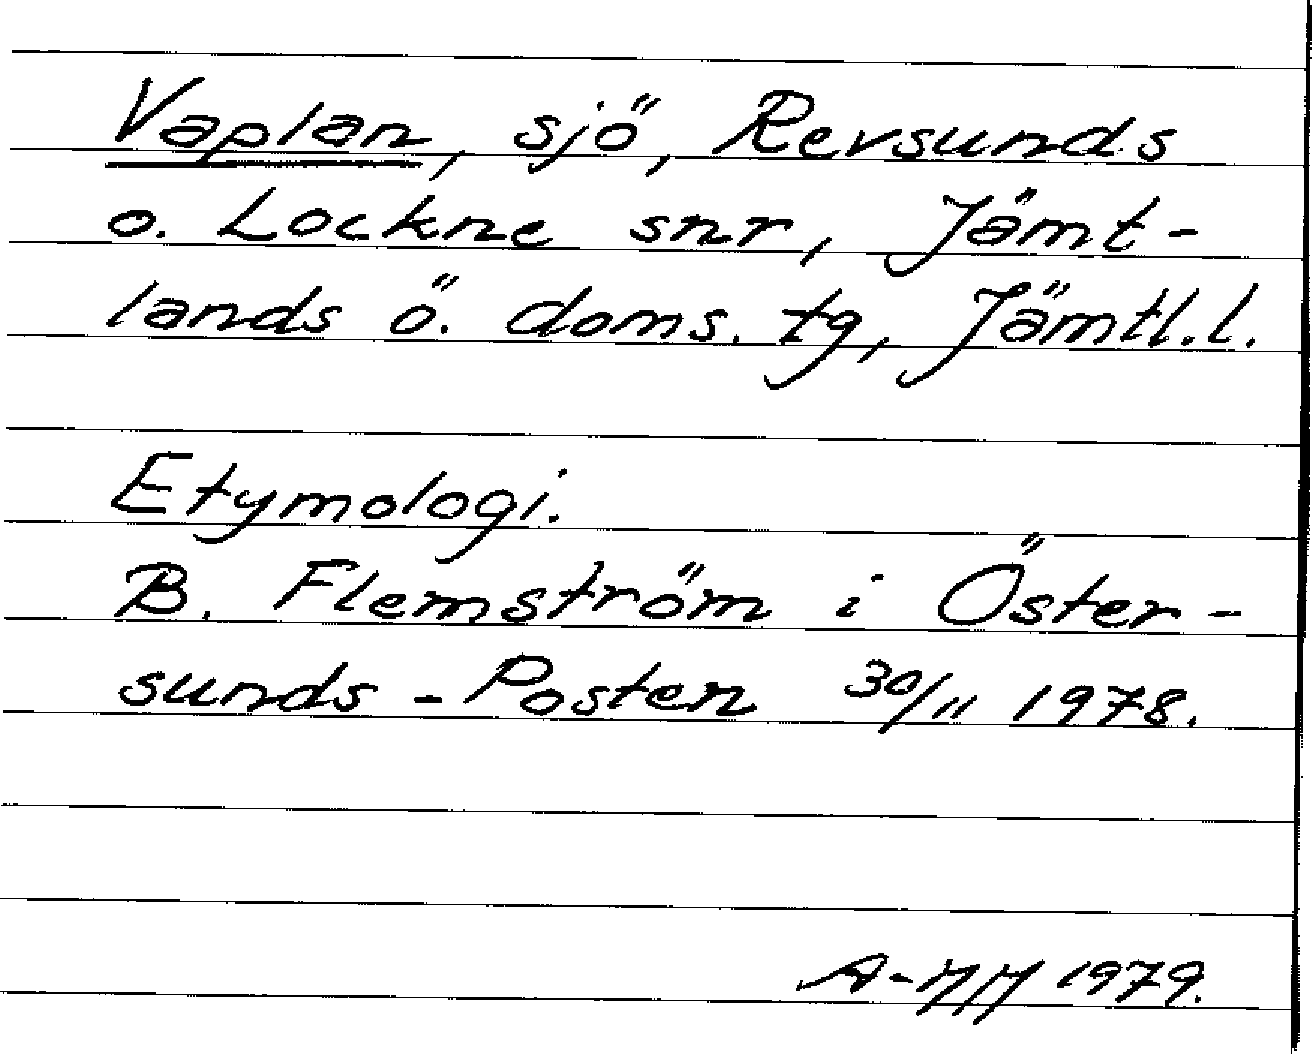 Vaplan, sjö, Revsunds
o. Lockne snr, Jämt-
lands ö. doms. tg, Jämtl. l.
Etymologi.
B. Flemström i Öster-
sunds-Posten 30/11 1978.
A-MM 1979.